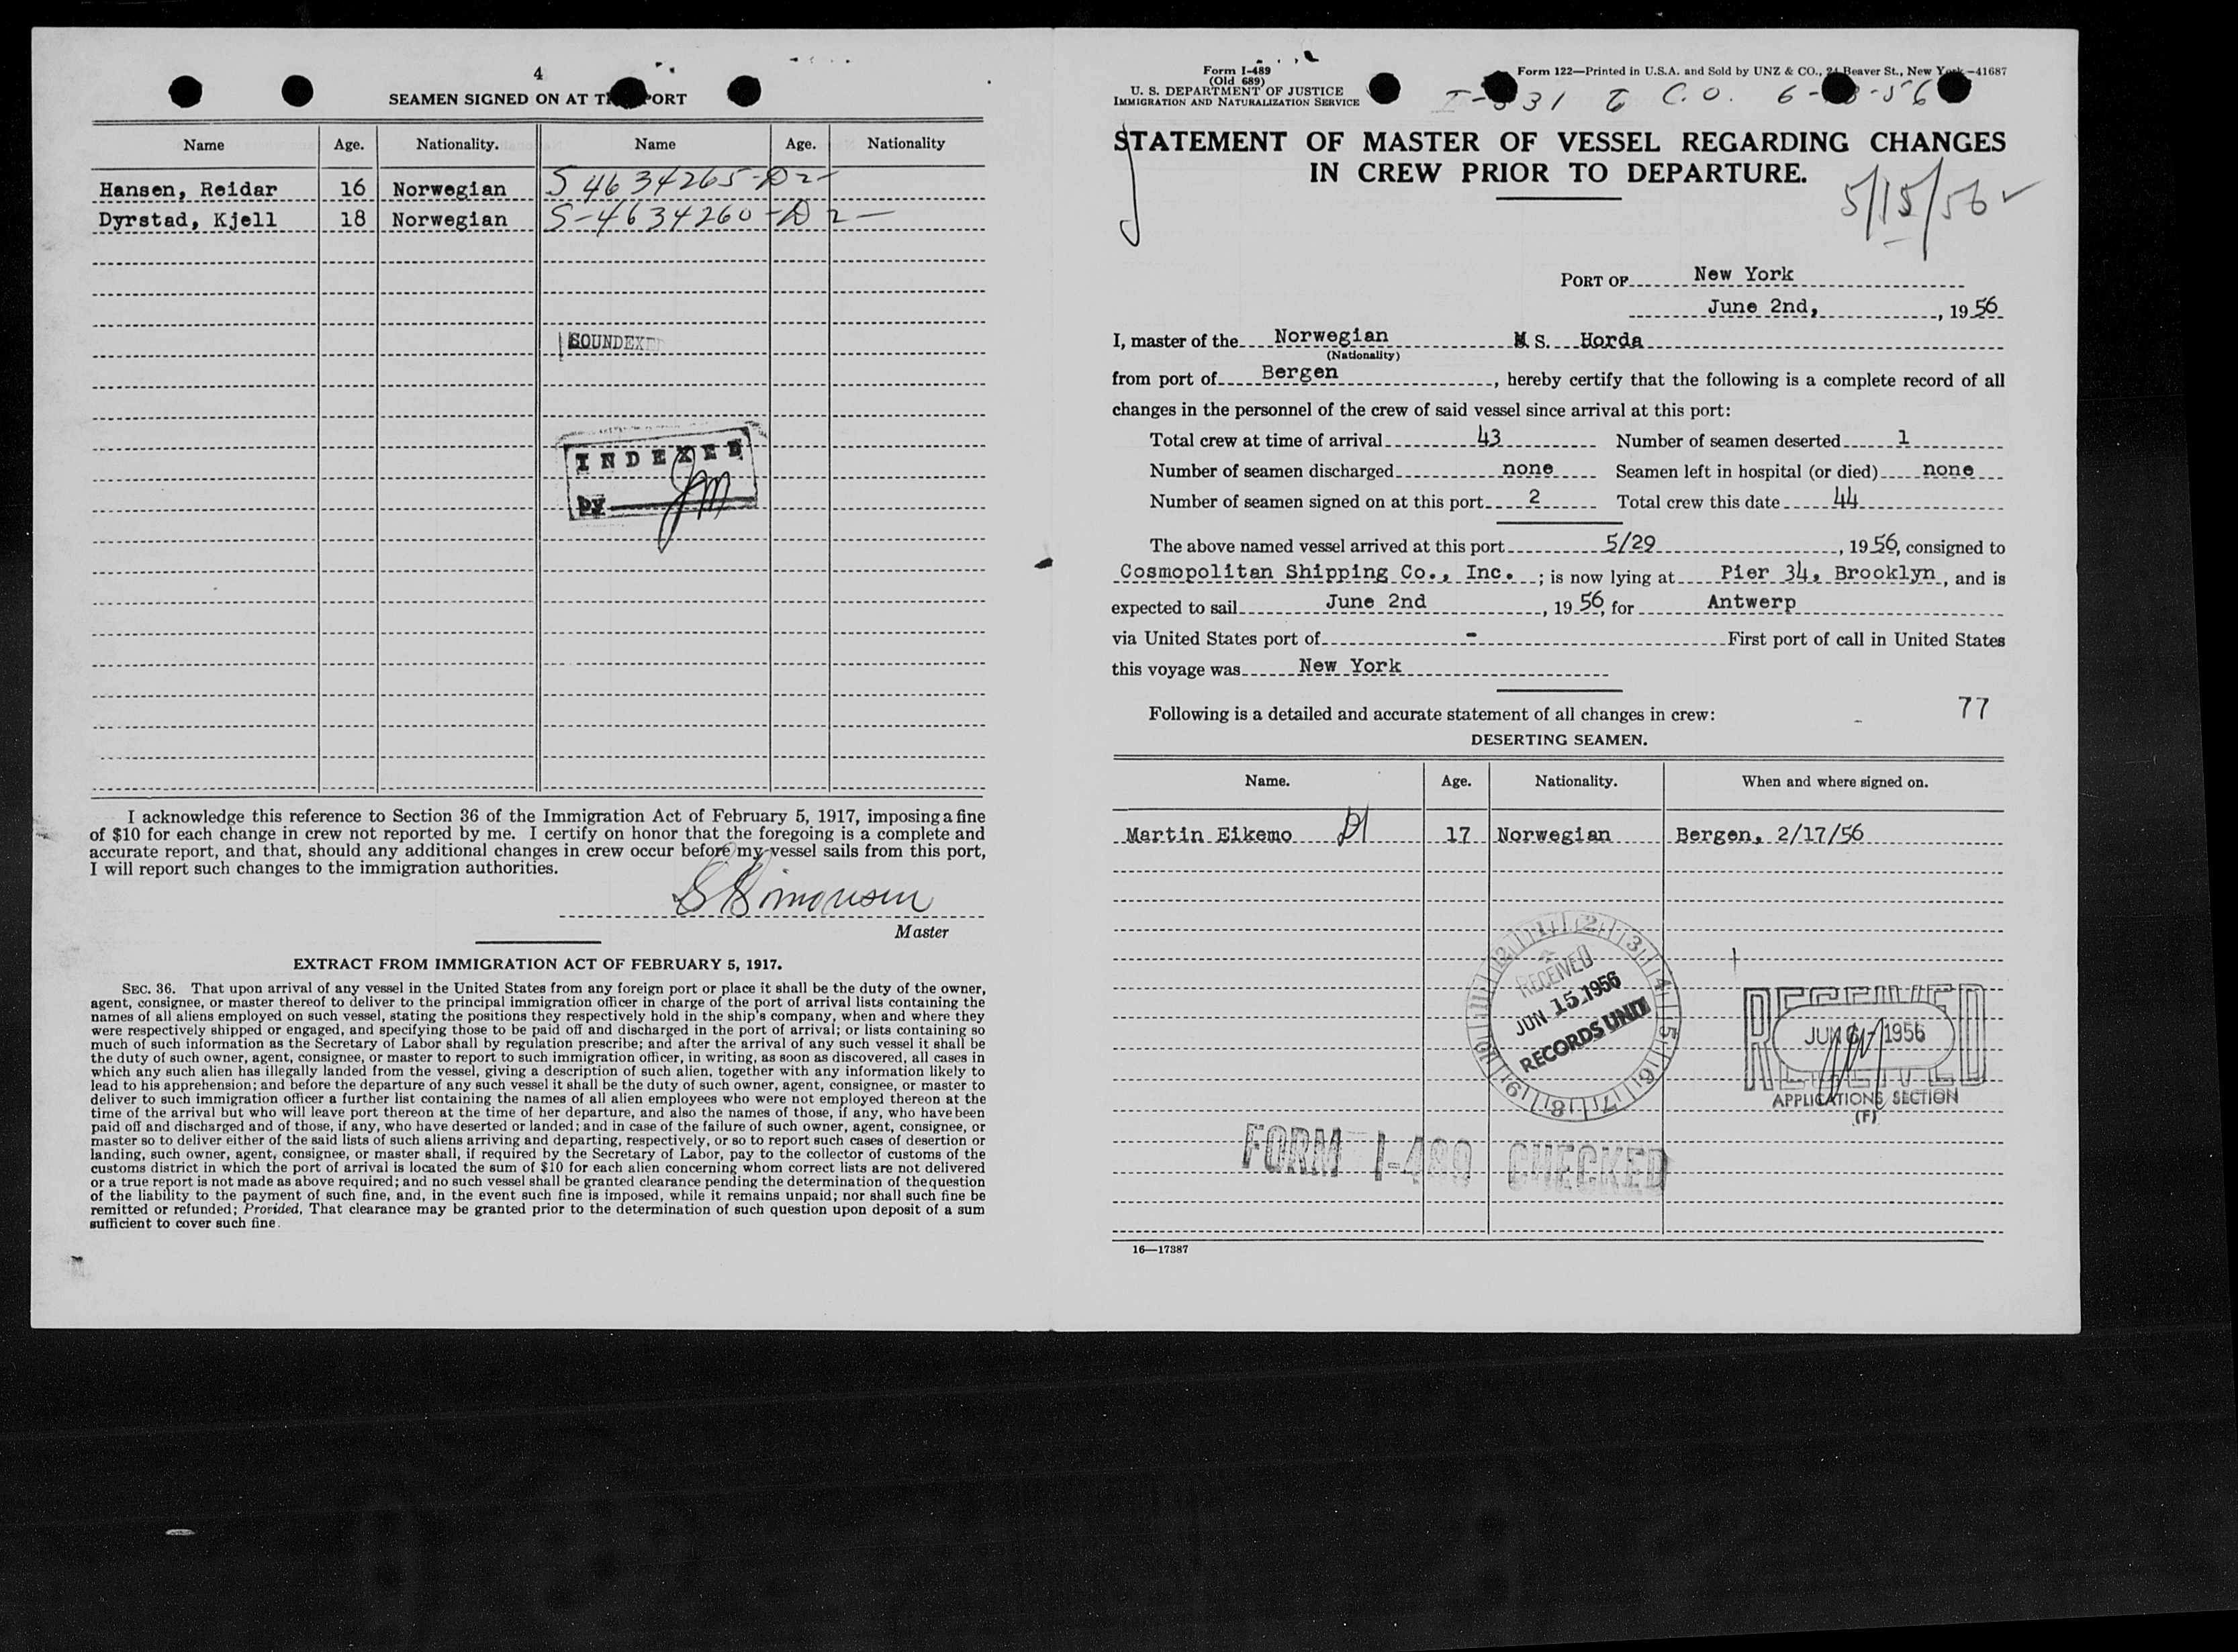 4
SEAMEN SIGNED ON AT PORT
Name Age. Nationality. Name Age. Nationality
Hansen, Reidar 16 Norwegian S 4634265-D2-
Dyrstad, Kjell 18 Norwegian S-4634260-D2-
SOUNDEX
INDEXED
by JM
I acknowledge this reference to Section 36 of the Immigration Act of February 5, 1917, imposing a fine
of $10 for each change in crew not reported by me. I certify on honor that the foregoing is a complete and
accurate report, and that, should any additional changes in crew occur before my vessel sails from this port,
I will report such changes to the immigration authorities.
Simonsen
Master
EXTRACT FROM IMMIGRATION ACT OF FEBRUARY 5, 1917.
SEC. 36. That upon arrival of any vessel in the United States from any foreign port or place it shall be the duty of the owner,
agent, consignee, or master thereof to deliver to the principal immigration officer in charge of the port of arrival lists containing the
names of all aliens employed on such vessel, stating the positions they respectively hold in the ship's company, when and where they
were respectively shipped or engaged, and specifying those to be paid off and discharged in the port of arrival; or lists containing so
much of such information as the Secretary of Labor shall by regulation prescribe; and after the arrival of any such vessel it shall be
the duty of such owner, agent, consignee, or master to report to such immigration officer, in writing, as soon as discovered, all cases in
which any such alien has illegally landed from the vessel, giving a description of such alien, together with any information likely to
lead to his apprehension; and before the departure of any such vessel it shall be the duty of such owner, agent, consignee, or master to
deliver to such immigration officer a further list containing the names of all alien employees who were not employed thereon at the
time of the arrival but who will leave port thereon at the time of her departure, and also the names of those, if any, who have been
paid off and discharged and of those, if any, who have deserted or landed; and in case of the failure of such owner, agent, consignee, or
master so to deliver either of the said lists of such aliens arriving and departing, respectively, or so to report such cases of desertion or
landing, such owner, agent, consignee, or master shall, if required by the Secretary of Labor, pay to the collector of customs of the
customs district in which the port of arrival is located the sum of $10 for each alien concerning whom correct lists are not delivered
or a true report is not made as above required; and no such vessel shall be granted clearance pending the determination of the question
of the liability to the payment of such fine, and, in the event such fine is imposed, while it remains unpaid; nor shall such fine be
remitted or refunded; Provided, That clearance may be granted prior to the determination of such question upon deposit of a sum
sufficient to cover such fine.
Form I-489
(Old 689)
U. S. DEPARTMENT OF JUSTICE
IMMIGRATION AND NATURALIZATION SERVICE
Form 122—Printed in U.S.A. and Sold by UNZ & CO., 24 Beaver St., New York—41687
C. O.
STATEMENT OF MASTER OF VESSEL REGARDING CHANGES
IN CREW PRIOR TO DEPARTURE.
5/15/56
PORT OF New York
June 2nd, , 1956
I, master of the Norwegian M S. Horda
(Nationality)
from port of Bergen , hereby certify that the following is a complete record of all
changes in the personnel of the crew of said vessel since arrival at this port:
Total crew at time of arrival 43 Number of seamen deserted 1
Number of seamen discharged none Seamen left in hospital (or died) none
Number of seamen signed on at this port 2 Total crew this date 44
The above named vessel arrived at this port 5/29 , 1956, consigned to
Cosmopolitan Shipping Co., Inc. ; is now lying at Pier 34, Brooklyn , and is
expected to sail June 2nd , 1956, for Antwerp
via United States port of - First port of call in United States
this voyage was New York
77
Following is a detailed and accurate statement of all changes in crew:
DESERTING SEAMEN.
Name. Age. Nationality. When and where signed on.
Martin Eikemo 17 Norwegian Bergen, 2/17/56
RECEIVED
JUN 15 1956
RECORDS UNIT
12 1 2 3 4 5 6 7 8 9 10 11
RECEIVED
JUN 6 - 1956
APPLICATIONS SECTION
(F)
FORM I-489 CHECKED
16—17387